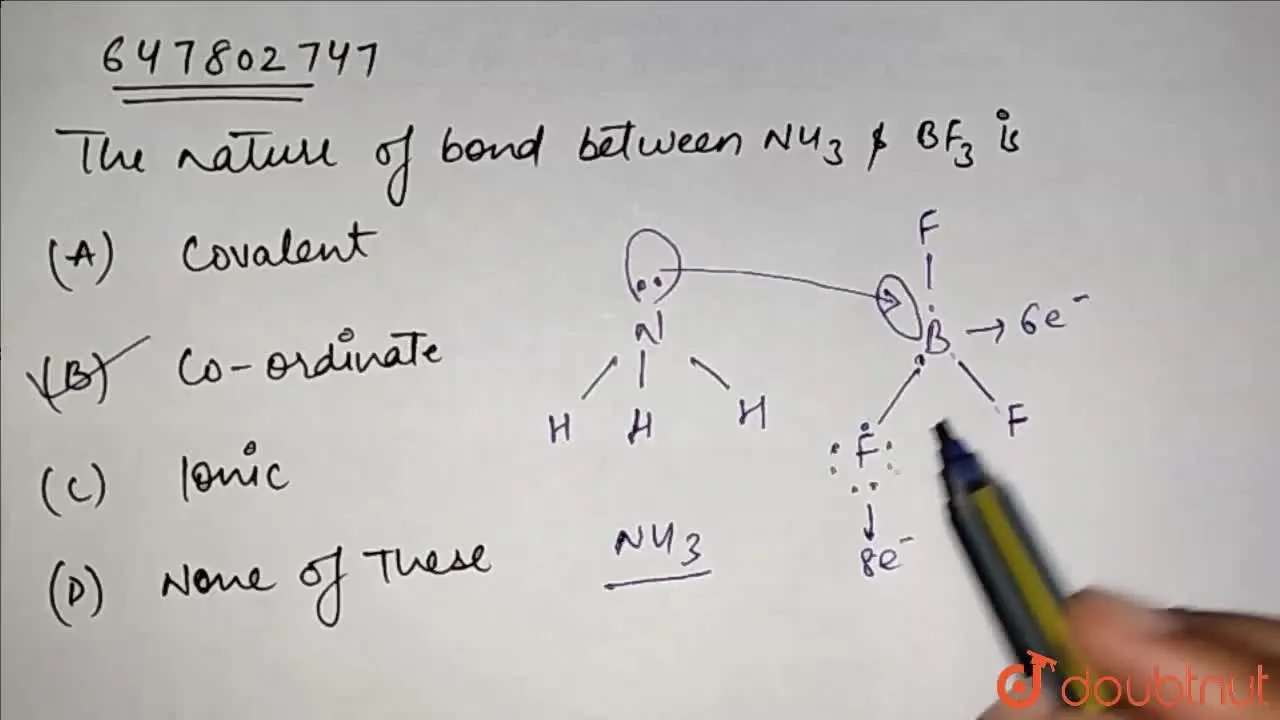 647802747
The nature of bond between NH3 & BF3 is
(A) Covalent
(B) Co-ordinate
(C) Ionic
(D) None of These
F
N
B → 6e⁻
H H H
F F
8e⁻
NH3
doubtnut